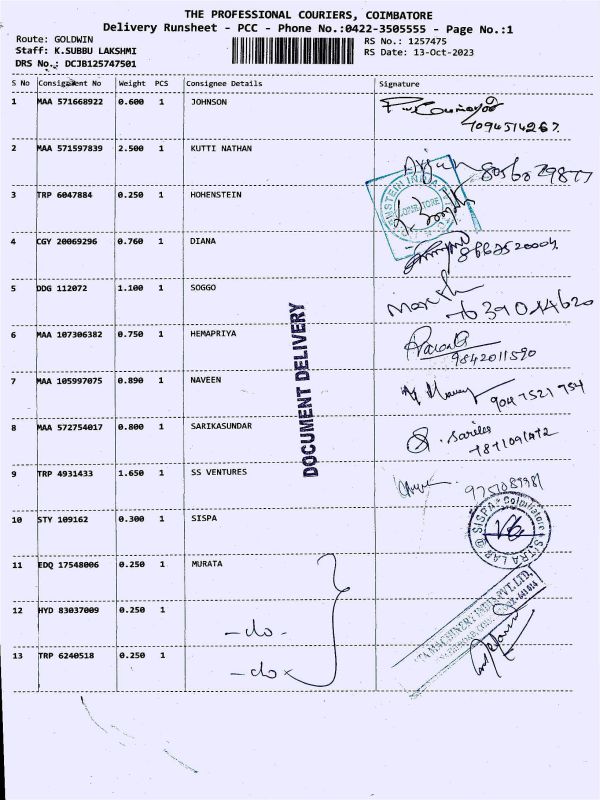 THE PROFESSIONAL COURIERS, COIMBATORE
Delivery Runsheet - PCC - Phone No.:0422-3505555 - Page No.:1
Route: GOLDWIN
RS No.: 1257475
Staff: K.SUBBU LAKSHMI
RS Date: 13-Oct-2023
DRS No.: DCJB125747501
S No Consignment No Weight PCS Consignee Details Signature
1 MAA 571668922 0.600 1 JOHNSON
7094514267.
2 MAA 571597839 2.500 1 KUTTI NATHAN
3 TRP 6047884 0.250 1 HOHENSTEIN
COIMBATORE
4 CGY 20069296 0.760 1 DIANA
5 DDG 112072 1.100 1 SOGGO
6 MAA 107306382 0.750 1 HEMAPRIYA
9842011590
7 MAA 105997075 0.890 1 NAVEEN
9047521754
DOCUMENT DELIVERY
8 MAA 572754017 0.800 1 SARIKASUNDAR
9 TRP 4931433 1.650 1 SS VENTURES
10 STY 109162 0.300 1 SISPA
SISPA Coimbatore SITRA LAB
11 EDQ 17548006 0.250 1 MURATA
MACHINERY INDIA PVT. LTD.
12 HYD 83037009 0.250 1
-do-
13 TRP 6240518 0.250 1
-do-